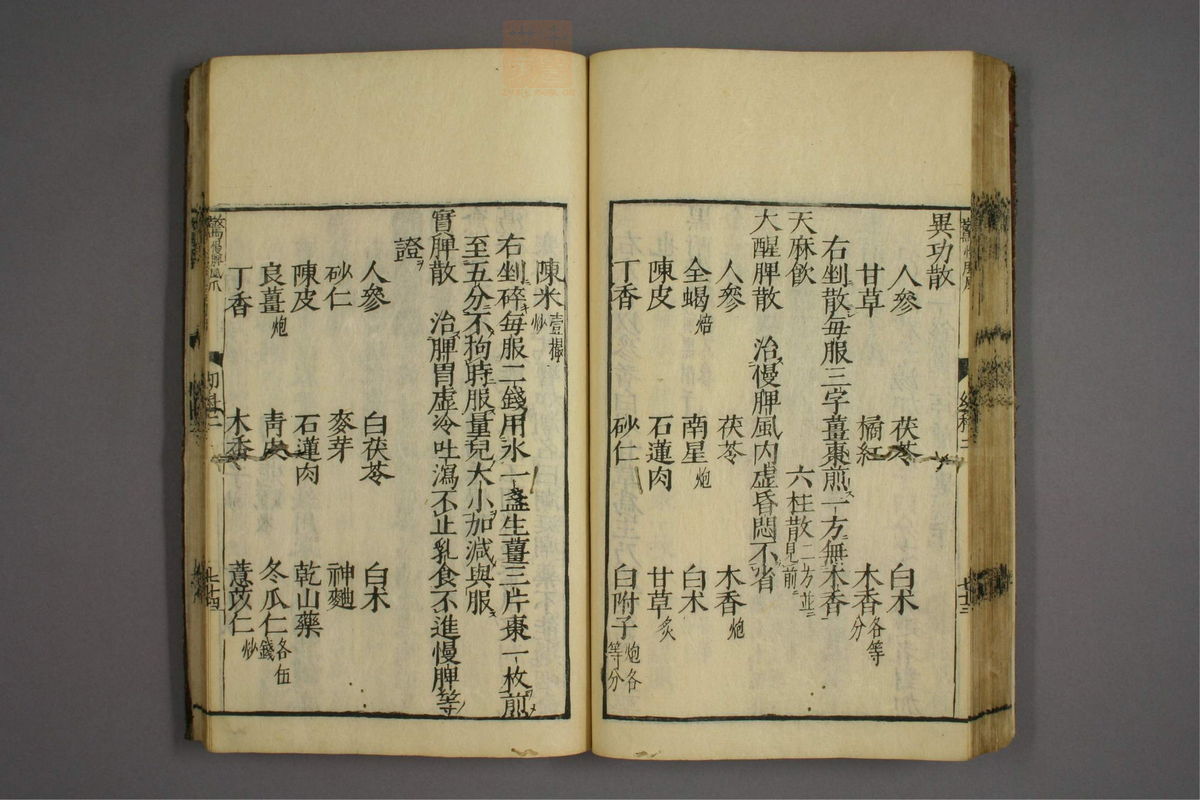 異功散
人參 茯苓 白朮
甘草 橘紅 木香各等分
右剉散每服三字薑棗煎一方無木香
天麻飲 六柱散二方並見前
大醒脾散 治慢脾風内虛昏悶不省
人參 茯苓 木香炮
全蝎焙 南星炮 白朮
陳皮 石蓮肉 甘草炙
丁香 砂仁 白附子炮各等分
陳米壹撮炒
右剉碎每服二錢用水一盞生薑三片棗一枚煎
至五分不拘時服量兒大小加減與服
實脾散 治脾胃虛冷吐瀉不止乳食不進慢脾等
證
人參 白茯苓 白朮
砂仁 麥芽 神麯
陳皮 石蓮肉 乾山藥
良薑炮 青皮 冬瓜仁各伍錢
丁香 木香 薏苡仁炒